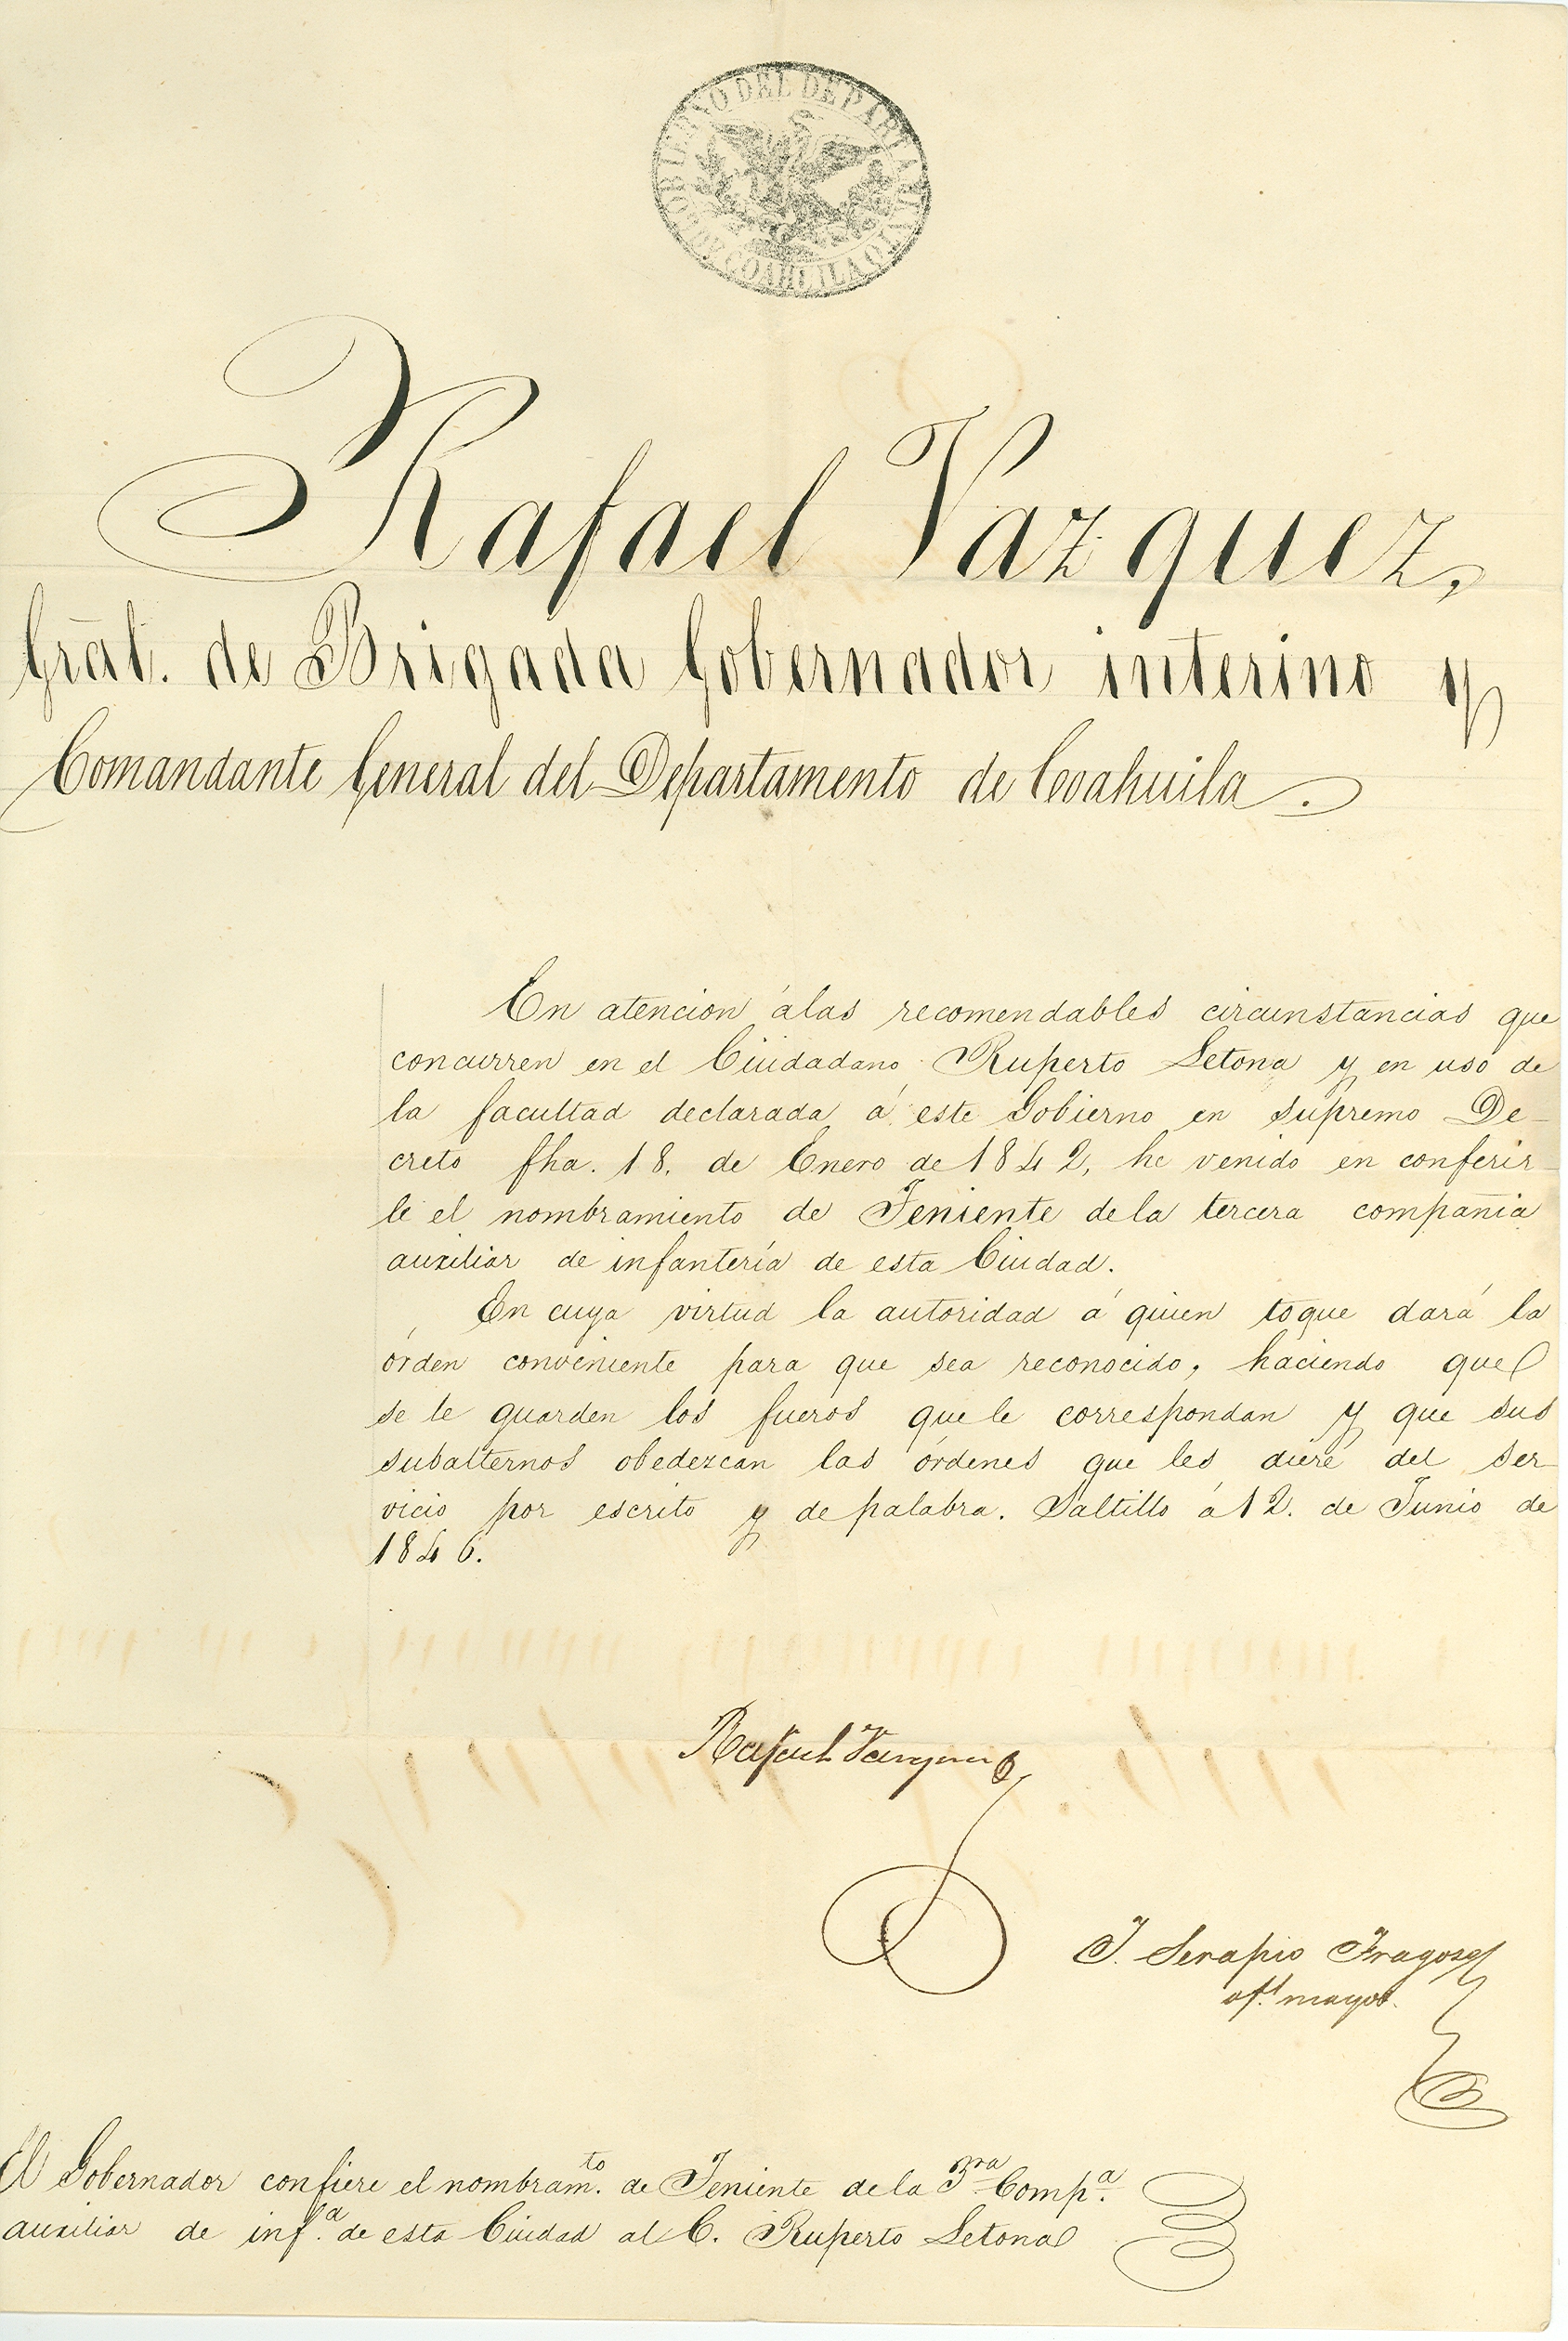 GOBIERNO DEL DEPARTAMENTO DE COAHUILA
Rafael Vazquez,
Grāl. de Brigada Gobernador interino y
Comandante General del Departamento de Coahuila.
En atencion álas recomendables circunstancias que
concurren en el Ciudadano Ruperto Letona y en uso de
la facultad declarada á este Gobierno en supremo De-
creto fha. 18. de Enero de 1842, he venido en conferir-
le el nombramiento de Teniente dela tercera compañia
auxiliar de infantería de esta Ciudad.
En cuya virtud la autoridad á quien toque dará la
órden conveniente para que sea reconocido, haciendo que
se le guarden los fueros que le correspondan y que sus
subalternos obedezcan las órdenes que les diere del ser-
vicio por escrito y de palabra. Saltillo á 12. de Junio de
1846.
Rafael Vazquez
J. Serapio Fragoso
ofl. mayor.
El Gobernador confiere el nombramto. de Teniente dela 3ra. Compa.
auxiliar de infa. de esta Ciudad al C. Ruperto Letona